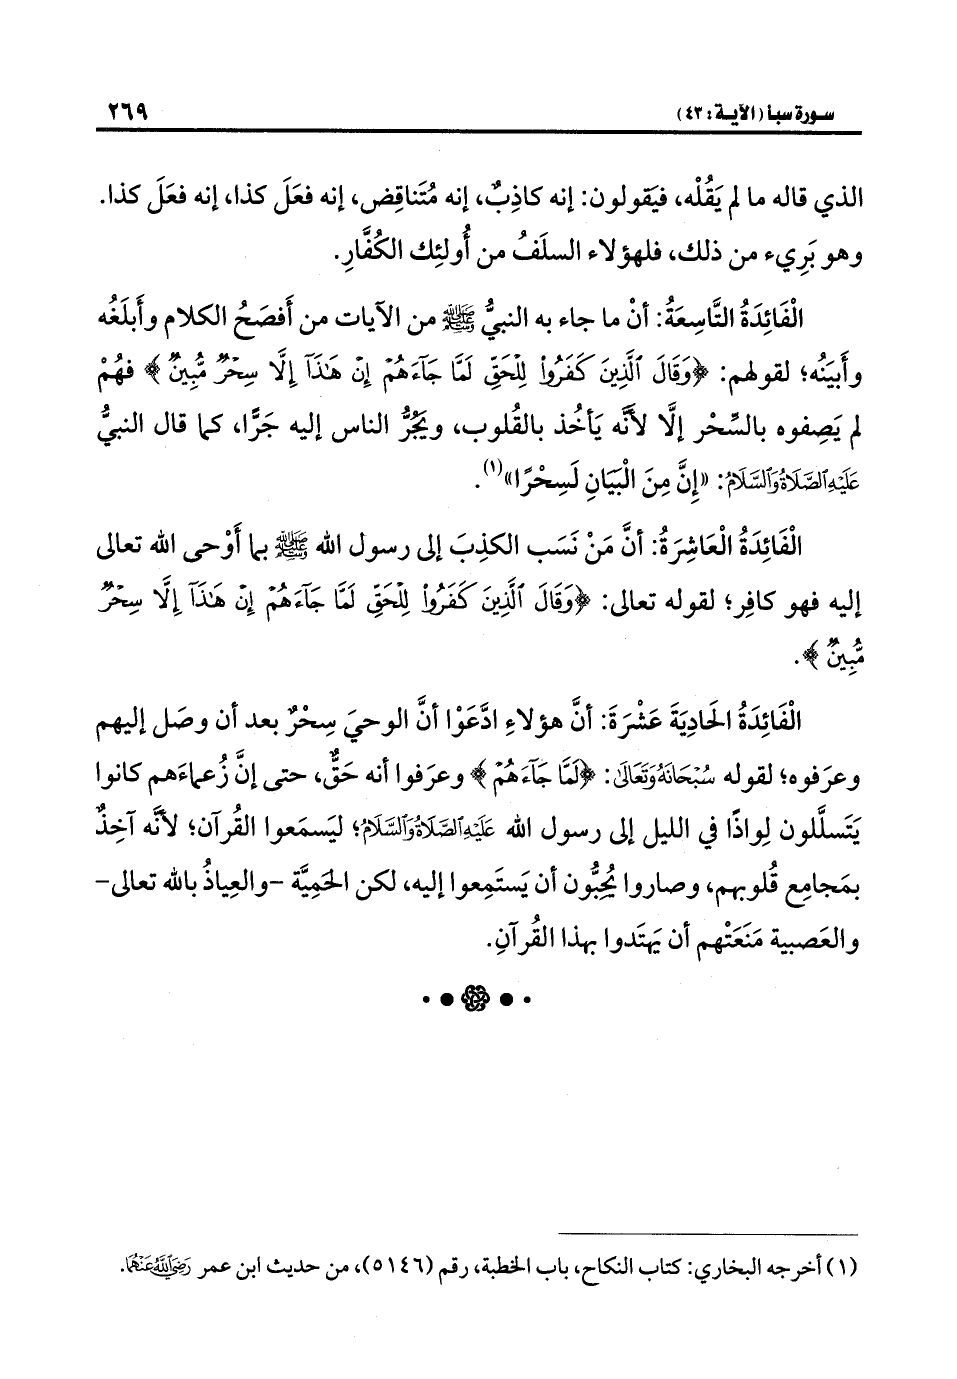 سورة سبأ (الآية: ٤٣) ٢٦٩
الذي قاله ما لم يَقُلْه، فيَقولون: إنه كاذِبٌ، إنه مُتَناقِض، إنه فعَلَ كذا، إنه فعَلَ كذا.
وهو بَرِيء من ذلك، فلهؤلاء السلَفُ من أُولئِك الكُفَّارِ.
الْفَائِدَةُ التَّاسِعَةُ: أنْ ما جاء به النبيُّ ﷺ من الآيات من أَفصَحُ الكلام وأَبلَغُه
وأَبيَنُه؛ لقولهم: ﴿وَقَالَ ٱلَّذِينَ كَفَرُوا۟ لِلْحَقِّ لَمَّا جَآءَهُمْ إِنْ هَـٰذَآ إِلَّا سِحْرٌ مُّبِينٌ﴾ فهُمْ
لم يَصِفوه بالسِّحْر إلَّا لأنَّه يَأخُذ بالقُلوب، ويَجُرُّ الناس إليه جَرًّا، كما قال النبيُّ
عَلَيْهِ الصَّلَاةُ وَالسَّلَامُ: «إِنَّ مِنَ الْبَيَانِ لَسِحْرًا»(١).
الْفَائِدَةُ الْعَاشِرَةُ: أنَّ مَنْ نَسَب الكذِبَ إلى رسول الله ﷺ بما أَوْحى الله تعالى
إليه فهو كافِر؛ لقوله تعالى: ﴿وَقَالَ ٱلَّذِينَ كَفَرُوا۟ لِلْحَقِّ لَمَّا جَآءَهُمْ إِنْ هَـٰذَآ إِلَّا سِحْرٌ
مُّبِينٌ﴾.
الْفَائِدَةُ الحَادِيَةَ عَشْرَةَ: أنَّ هؤلاءِ ادَّعَوْا أنَّ الوحيَ سِحْرٌ بعد أن وصَل إليهم
وعرَفوه؛ لقوله سُبْحَانَهُ وَتَعَالَى: ﴿لَمَّا جَآءَهُمْ﴾ وعرَفوا أنه حَقٌّ، حتى إنَّ زُعماءَهم كانوا
يَتَسلَّلون لِواذًا في الليل إلى رسول الله عَلَيْهِ الصَّلَاةُ وَالسَّلَامُ؛ ليَسمَعوا القُرآن؛ لأنَّه آخِذٌ
بمَجامِع قُلوبهم، وصاروا يُحِبُّون أن يَستَمِعوا إليه، لكن الحَمِيَّة -والعِياذُ بالله تعالى-
والعَصبية مَنَعَتْهم أن يَهتَدوا بهذا القُرآنِ.
(١) أخرجه البخاري: كتاب النكاح، باب الخطبة، رقم (٥١٤٦)، من حديث ابن عمر رَضِيَ اللَّهُ عَنْهُمَا.